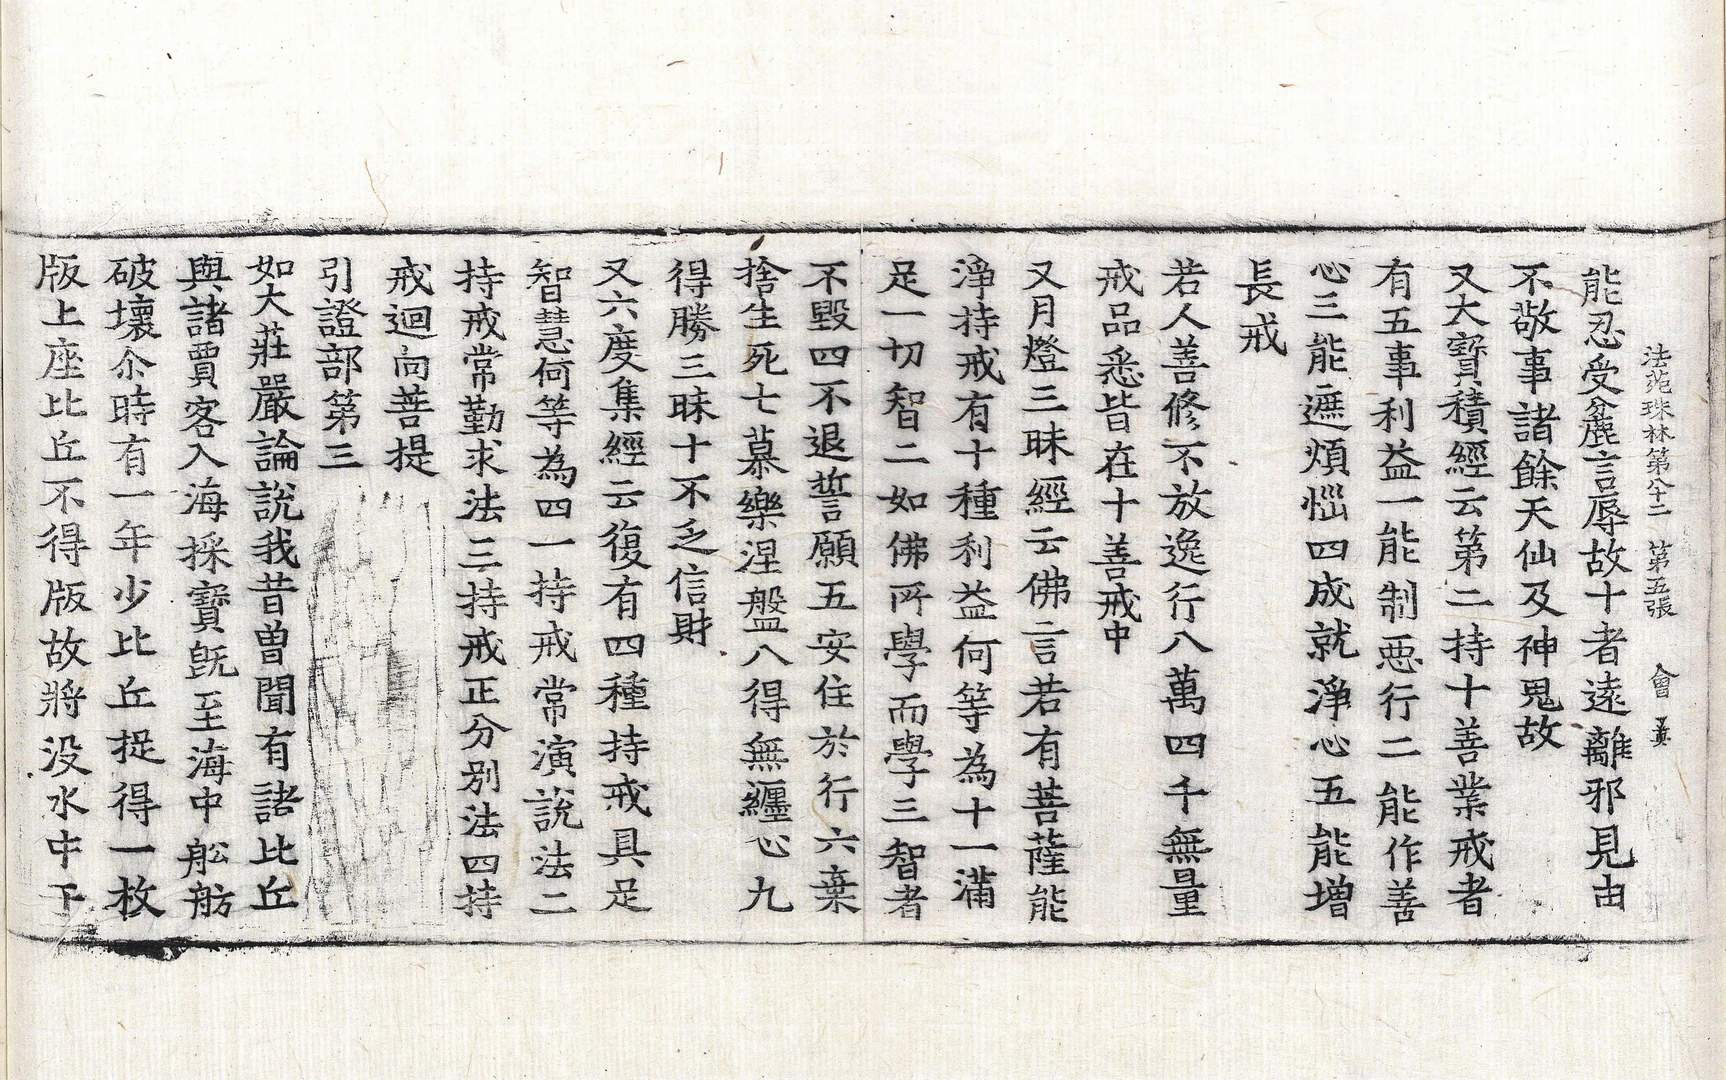 法苑珠林第八十二 第五張 會
能忍受麁言辱故十者遠離邪見由
不敬事諸餘天仙及神鬼故
又大寶積經云第二持十善業戒者
有五事利益一能制惡行二能作善
心三能遮煩惱四成就淨心五能增
長戒
若人善修不放逸行八萬四千無量
戒品悉皆在十善戒中
又月燈三昧經云佛言若有菩薩能
淨持戒有十種利益何等為十一滿
足一切智二如佛所學而學三智者
不毀四不退誓願五安住於行六棄
捨生死七慕樂涅盤八得無纏心九
得勝三昧十不乏信財
又六度集經云復有四種持戒具足
智慧何等為四一持戒常演說法二
持戒常勤求法三持戒正分別法四持
戒迴向菩提
引證部第三
如大莊嚴論說我昔曾聞有諸比丘
與諸賈客入海採寶既至海中舩舫
破壞尒時有一年少比丘捉得一枚
版上座比丘不得版故將没水中下